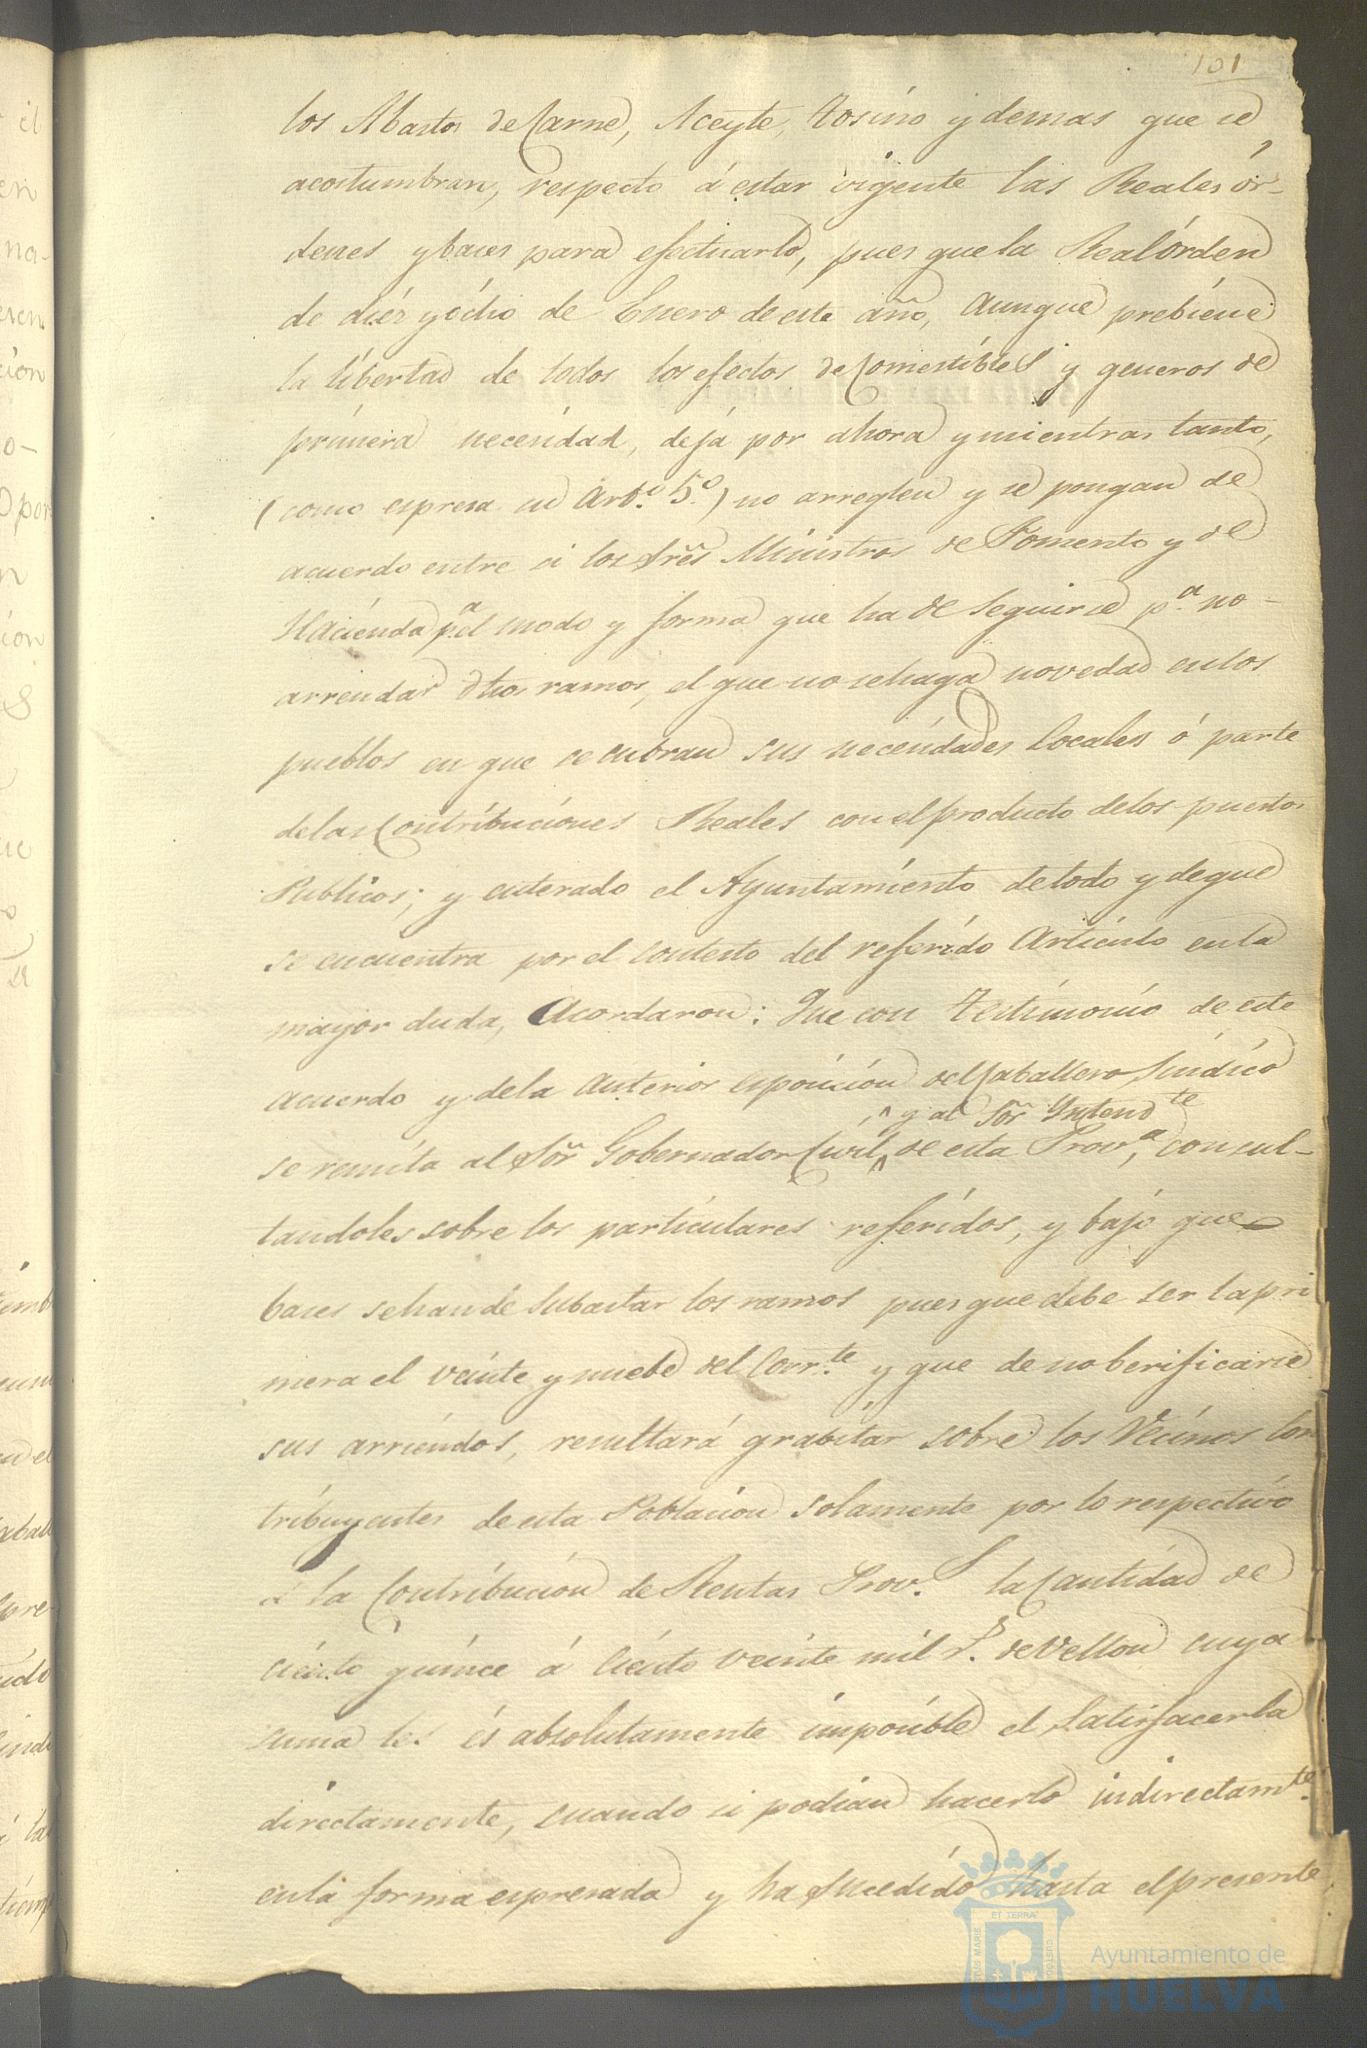 101
los Abastos de Carne, Aceyte, tosino y demas que se
acostumbran, respecto á estar vigente las Reales ór-
denes y bases para efectuarlo, pues que la Real órden
de diéz y ócho de Enero de este año, aunque prebiene
la libertad de todos los efectos de Comestibles y generos de
primera necesidad, dejá por ahora y mientras tanto,
(como espresa su Artº. 5º.) no arreglen y se pongan de
acuerdo entre si los Sres Ministros de Fomento y de
Hacienda pª. el modo y forma que ha de seguirse pª. no
arrendar dhos ramos, el que no se haga novedad en los
pueblos en que se cubran sus necesidades locales ó parte
de las Contribuciones Reales con el producto de los puestos
Publicos; y enterado el Ayuntamiento de todo y de que
se encuentra por el contesto del referido Articulo en la
mayor duda, Acordaron: Que con testimonio de este
acuerdo y de la anterior esposicion del Caballero Sindico
^ y al Sor Yntendte
se remita al Sor Gobernador Civil ^ de esta Provª, consul-
tandoles sobre los particulares referidos, y bajo que
bases se han de subastar los ramos pues que debe ser la pri
mera el veinte y nuebe del Corrte. y que de no berificarse
sus arriendos, resultará grabitar sobre los Vecinos Con
tribuyentes de esta Poblacion solamente por lo respectivo
á la Contribucion de Rentas Provs. la Cantidad de
ciento quince á ciento veinte mil rs. de Vellon cuya
suma les és absolutamente imposible el satisfacerla
directamente, cuando si podian hacerlo indirectamte.
en la forma espresada y ha sucedido hasta el presente
Ayuntamiento de
HUELVA